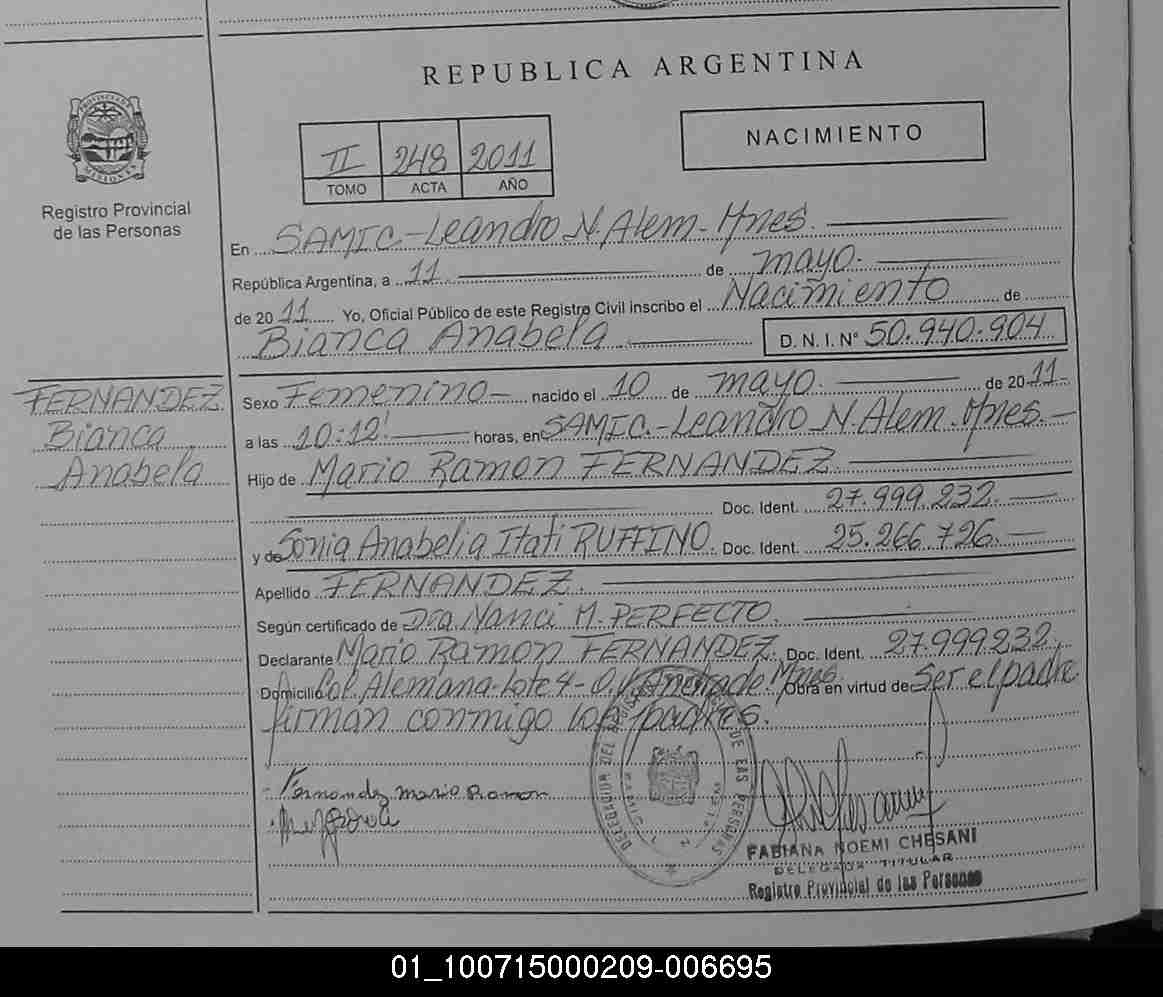 REPUBLICA ARGENTINA
PROVINCIA DE
MISIONES
Registro Provincial
de las Personas
NACIMIENTO
II 248 2011
TOMO ACTA AÑO
En SAMIC-Leandro N. Alem-Mnes.
República Argentina, a 11 de mayo.
de 2011 Yo, Oficial Público de este Registro Civil inscribo el Nacimiento de
Bianca Anabela D. N. I. N° 50.940.904
FERNANDEZ
Bianca
Anabela
Sexo Femenino nacido el 10 de mayo. de 2011
a las 10:12' horas, en SAMIC.-Leandro N. Alem.Mnes.
Hijo de Mario Ramon FERNANDEZ
Doc. Ident. 27.999.232.
y de Sonia Anabelia Itati RUFFINO. Doc. Ident. 25.266.726.
Apellido FERNANDEZ.
Según certificado de Dra Nanci M. PERFECTO.
Declarante Mario Ramon FERNANDEZ. Doc. Ident. 27.999.232
Domicilio Col. Alemana-Lote 4- Andrade Mnes. Obra en virtud de Ser el padre
firman conmigo los padres.
Fernandez Mario Ramon
DE LAS PERSONAS
FABIANA NOEMI CHESANI
DELEGADA TITULAR
Registro Provincial de las Personas
01_100715000209-006695